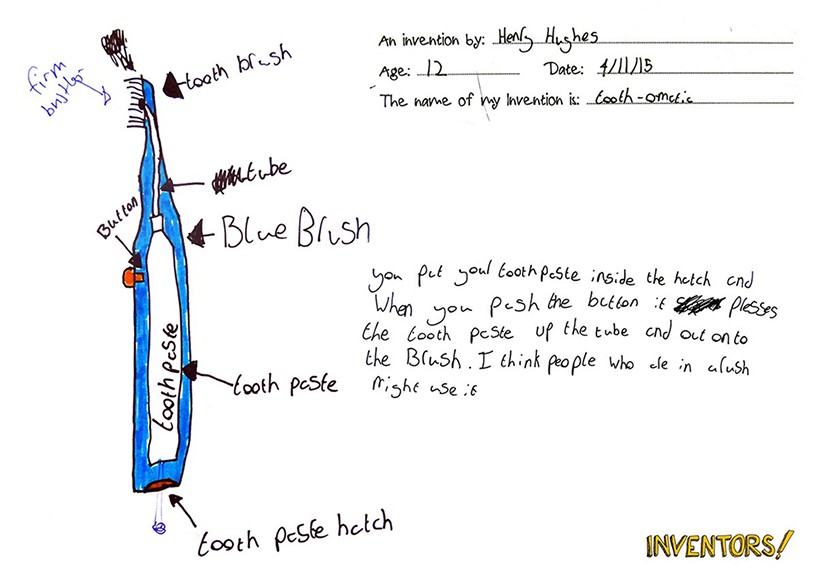 An invention by: Henry Hughes
Age: 12 Date: 4/11/15
The name of my Invention is: tooth-omatic
firm
tooth brush
tube
Button
Blue Brush
you put your toothpaste inside the hatch and
When you push the button it presses
the tooth paste up the tube and out onto
the Brush. I think people who are in a rush
might use it
toothpaste
tooth paste
tooth paste hatch
INVENTORS!